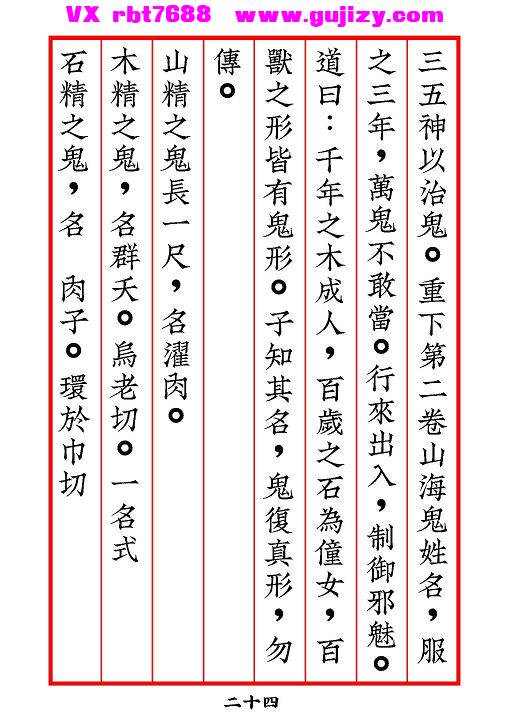 VX rbt7688 www.gujizy.com
三五神以治鬼。重下第二卷山海鬼姓名，服
之三年，萬鬼不敢當。行來出入，制御邪魅。
道曰：千年之木成人，百歲之石為僮女，百
獸之形皆有鬼形。子知其名，鬼復真形，勿
傳。
山精之鬼長一尺，名濯肉。
木精之鬼，名群夭。烏老切。一名式
石精之鬼，名 肉子。環於巾切
二十四